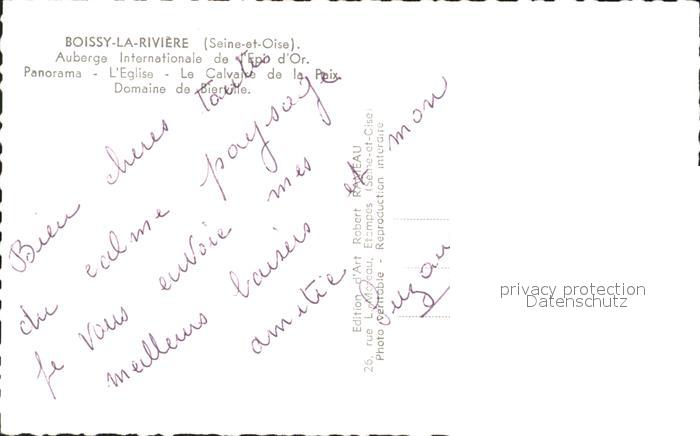 BOISSY-LA-RIVIÈRE (Seine-et-Oise).
Auberge Internationale de l'Epi d'Or.
Panorama - L'Eglise - Le Calvaire de la Paix.
Domaine de Bierville.
Bien cheres Tantes
du calme paysage
je vous envoie mes
meilleurs baisers et mon
amitié
Edition d'Art Robert RAMEAU
26, rue L. Moreau, Etampes (Seine-et-Oise)
Photo véritable - Reproduction interdite
privacy protection
Datenschutz